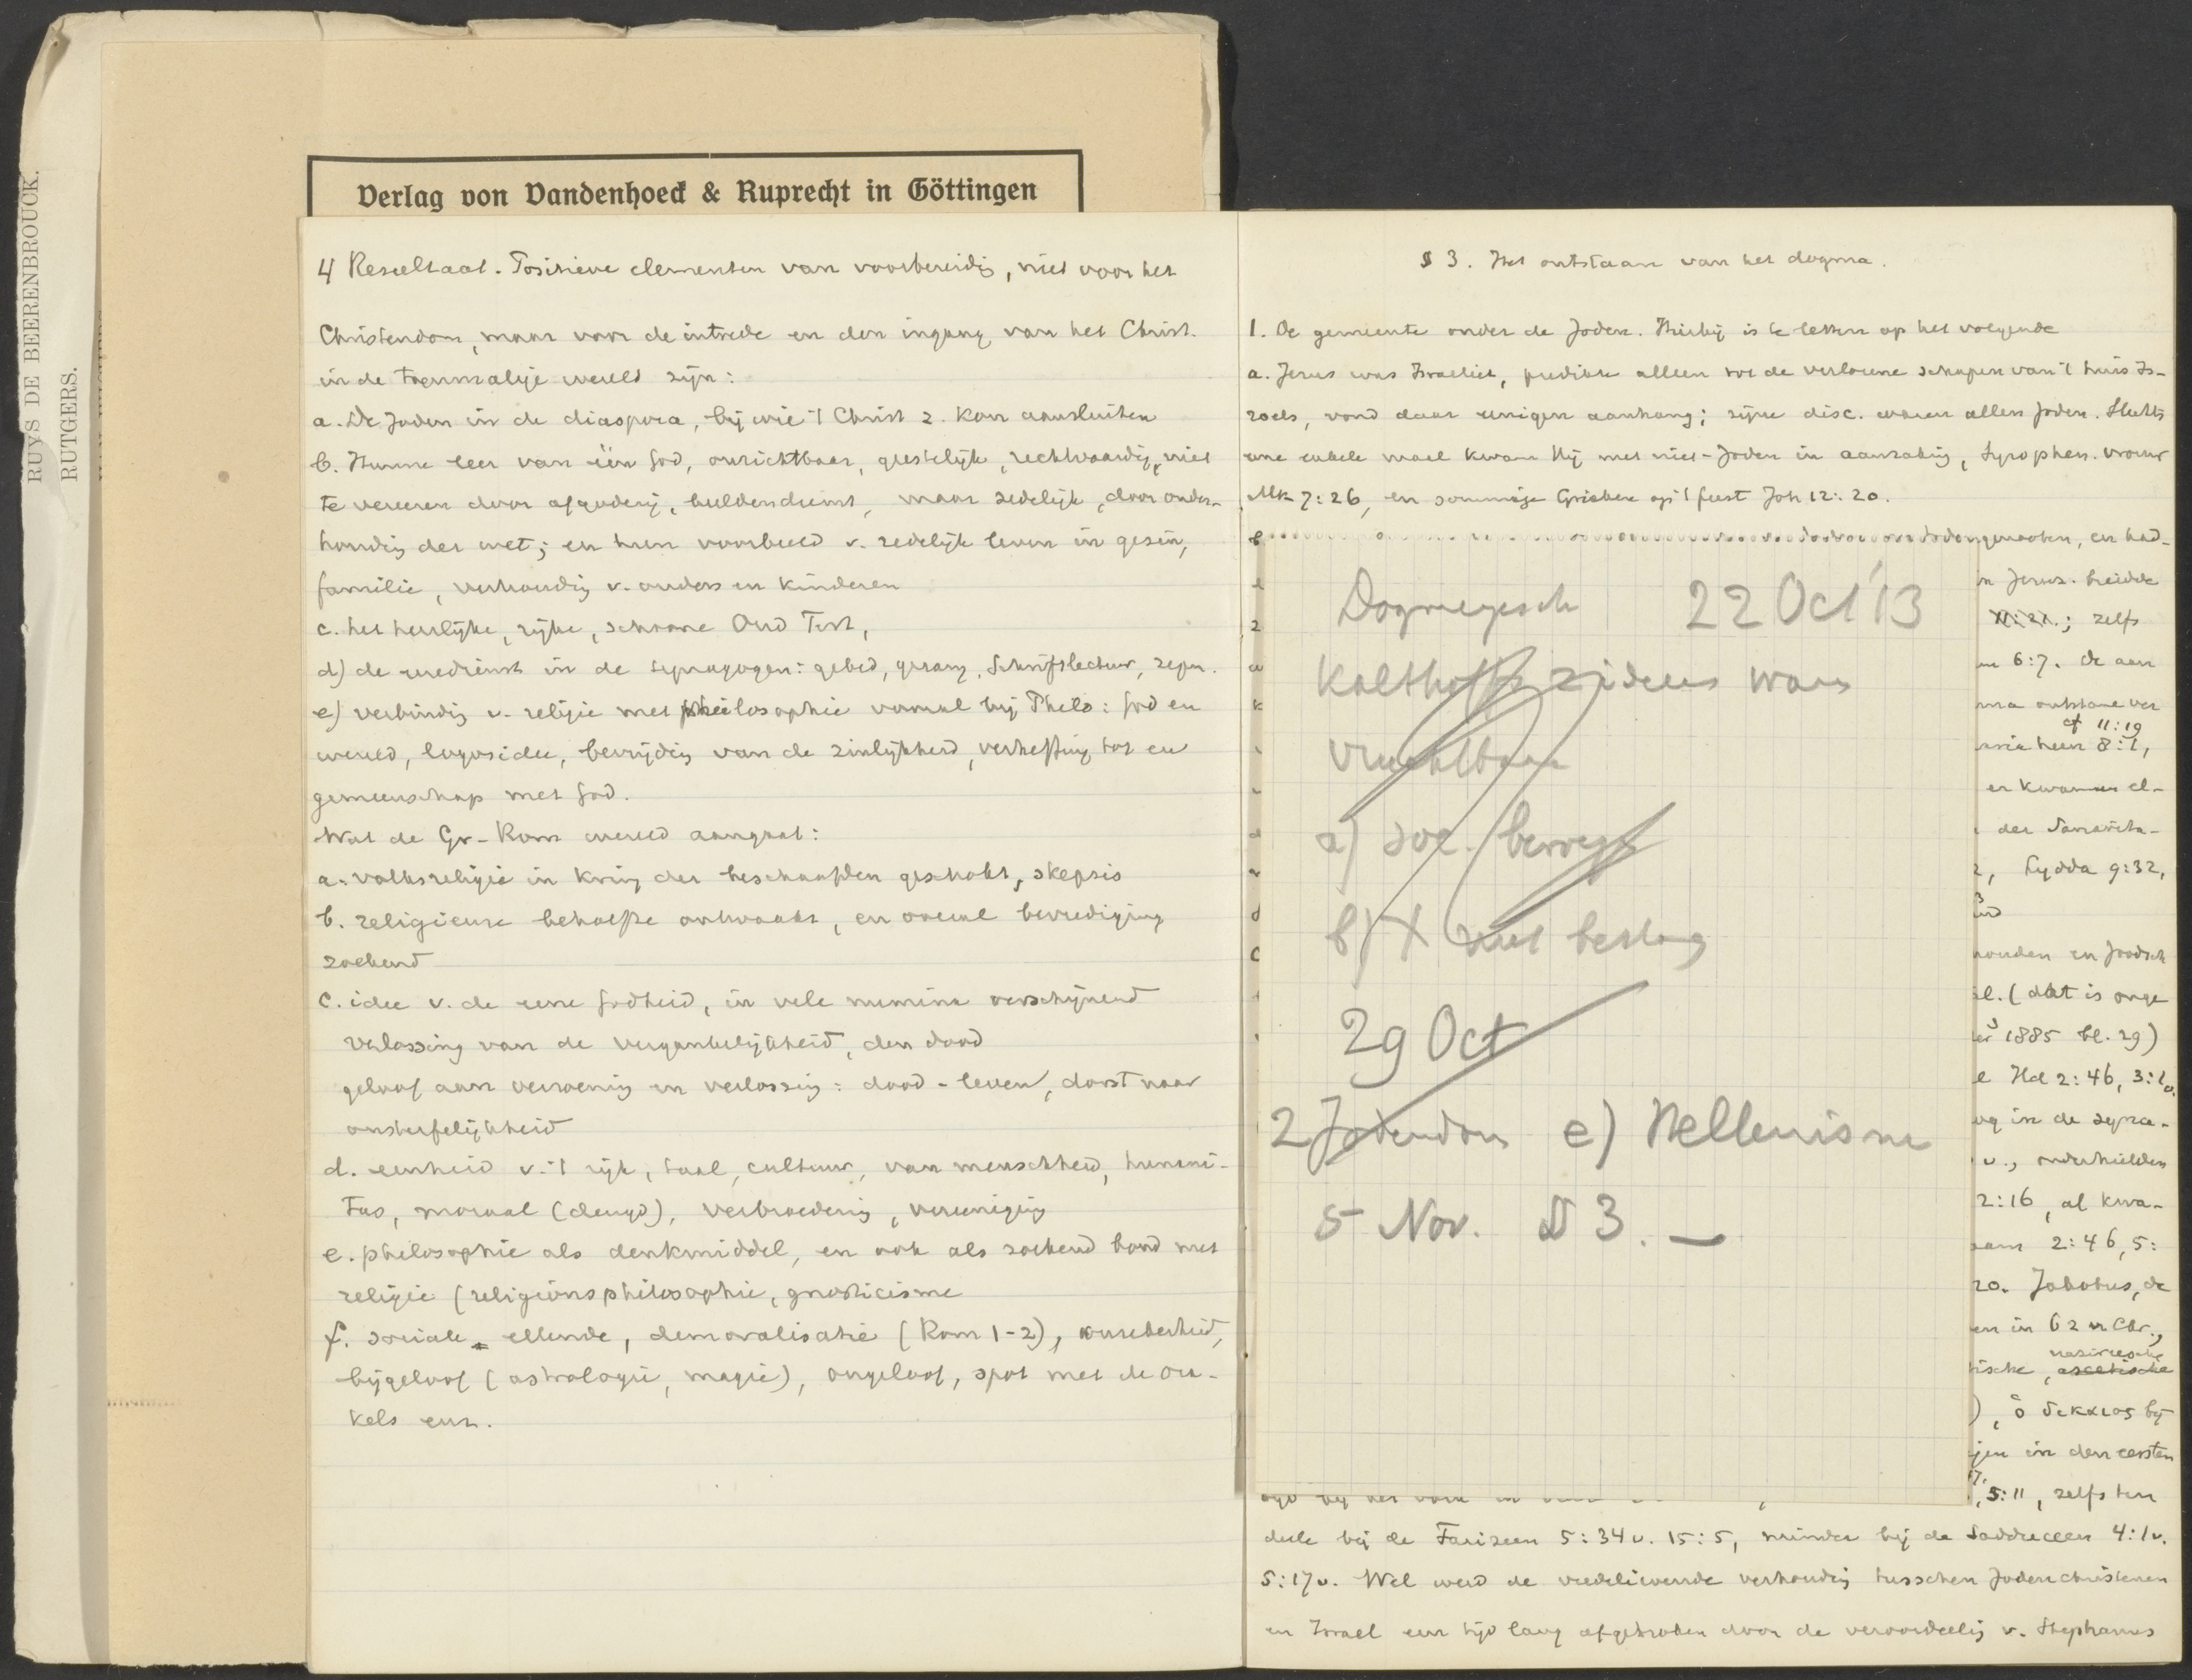 RUYS DE BEERENBROUCK.
RUTGERS.
Verlag von Vandenhoeck & Ruprecht in Göttingen
4 Resultaat. Positieve elementen van voorbereidig, niet voor het
Christendom, maar voor de intrede en den ingang van het Christ.
in de toenmalige wereld zijn:
a. De Joden in de diaspora, bij wie 't Christ z. kon aansluiten
b. Hunne leer van één God, onzichtbaar, geestelijk, rechtvaardig, niet
te vereeren door afgoderij, beeldendienst, maar zedelijk, door onder-
houdig der wet; en hun voorbeeld v. zedelijk leven in gezin,
familie, verhoudig v. ouders en kinderen
c. het heerlijke, rijke, schoone Oud Test,
d) de eredienst in de synagogen: gebed, gezang, Schriftlectuur, zegen.
e) verbindig v. religie met philosophie vooral bij Philo: God en
wereld, logosidee, bevrijdig van de zinlijkheid, verheffing tot en
gemeenschap met God.
Wat de Gr-Rom wereld aangaat:
a. volksreligie in kring der beschaafden geschokt, skepsis
b. religieuse behoefte ontwaakt, en overal bevrediging
zoekend
c. idee v. de eene Godheid, in vele numina verschijnend
verlossing van de vergankelijkheid, den dood
geloof aan verzoenig en verlossig: dood - leven, dorst naar
onsterfelijkheid
d. eenheid v. 't rijk, taal, cultuur, van menschheid, humani-
tas, moraal (deugd), verbroederig, vereeniging
e. philosophie als denkmiddel, en ook als zoekend band met
religie (religionsphilosophie, gnosticisme
f. sociale ellende, demoralisatie (Rom 1-2), onzekerheid,
bijgeloof (astrologie, magie), ongeloof, spot met de ora-
kels enz.
§ 3. Het ontstaan van het dogma.
1. De gemeente onder de Joden. Hierbij is te letten op het volgende
a. Jezus was Israeliet, predikte alleen tot de verlorene schapen van 't huis Is-
raels, vond daar eenigen aanhang; zijne disc. waren allen Joden. Slechts
eene enkele maal kwam Hij met niet-Joden in aanrakig, Syrophen. vrouw
Mk 7:26, en sommige Grieken op 't feest Joh 12:20.
genooten, en had-
Dogmegesch 22 Oct '13
Kalthoffs
vruchtbaar
a) soc. beweg
b) X niet bestaan
29 Oct
2 Jodendom e) Hellenisme
5 Nov. § 3. —
in Jerus. breidde
; zelfs
6:7. de aan
cf 11:19
8:1,
er kwamen el-
der Samarita-
, Lydda 9:32,
houden en Joodsch
el. (dat is onge
1885 bl. 29)
e Hd 2:46, 3:1v.
og in de syna-
v., onderhielden
2:16, al kwa-
2:46, 5:
20. Jakobus, de
en in 62 n Chr.,
nasireesche
tische, ascetische
), ὁ δικαιος bij
gen in den eersten
, 5:11, zelfs ten
deele bij de Farizeen 5:34v. 15:5, minder bij de Sadduceen 4:1v.
5:17v. Wel werd de vredelievende verhoudig tusschen Jodenchristenen
en Israel een tijd lang afgebroken door de veroordeelig v. Stephanus